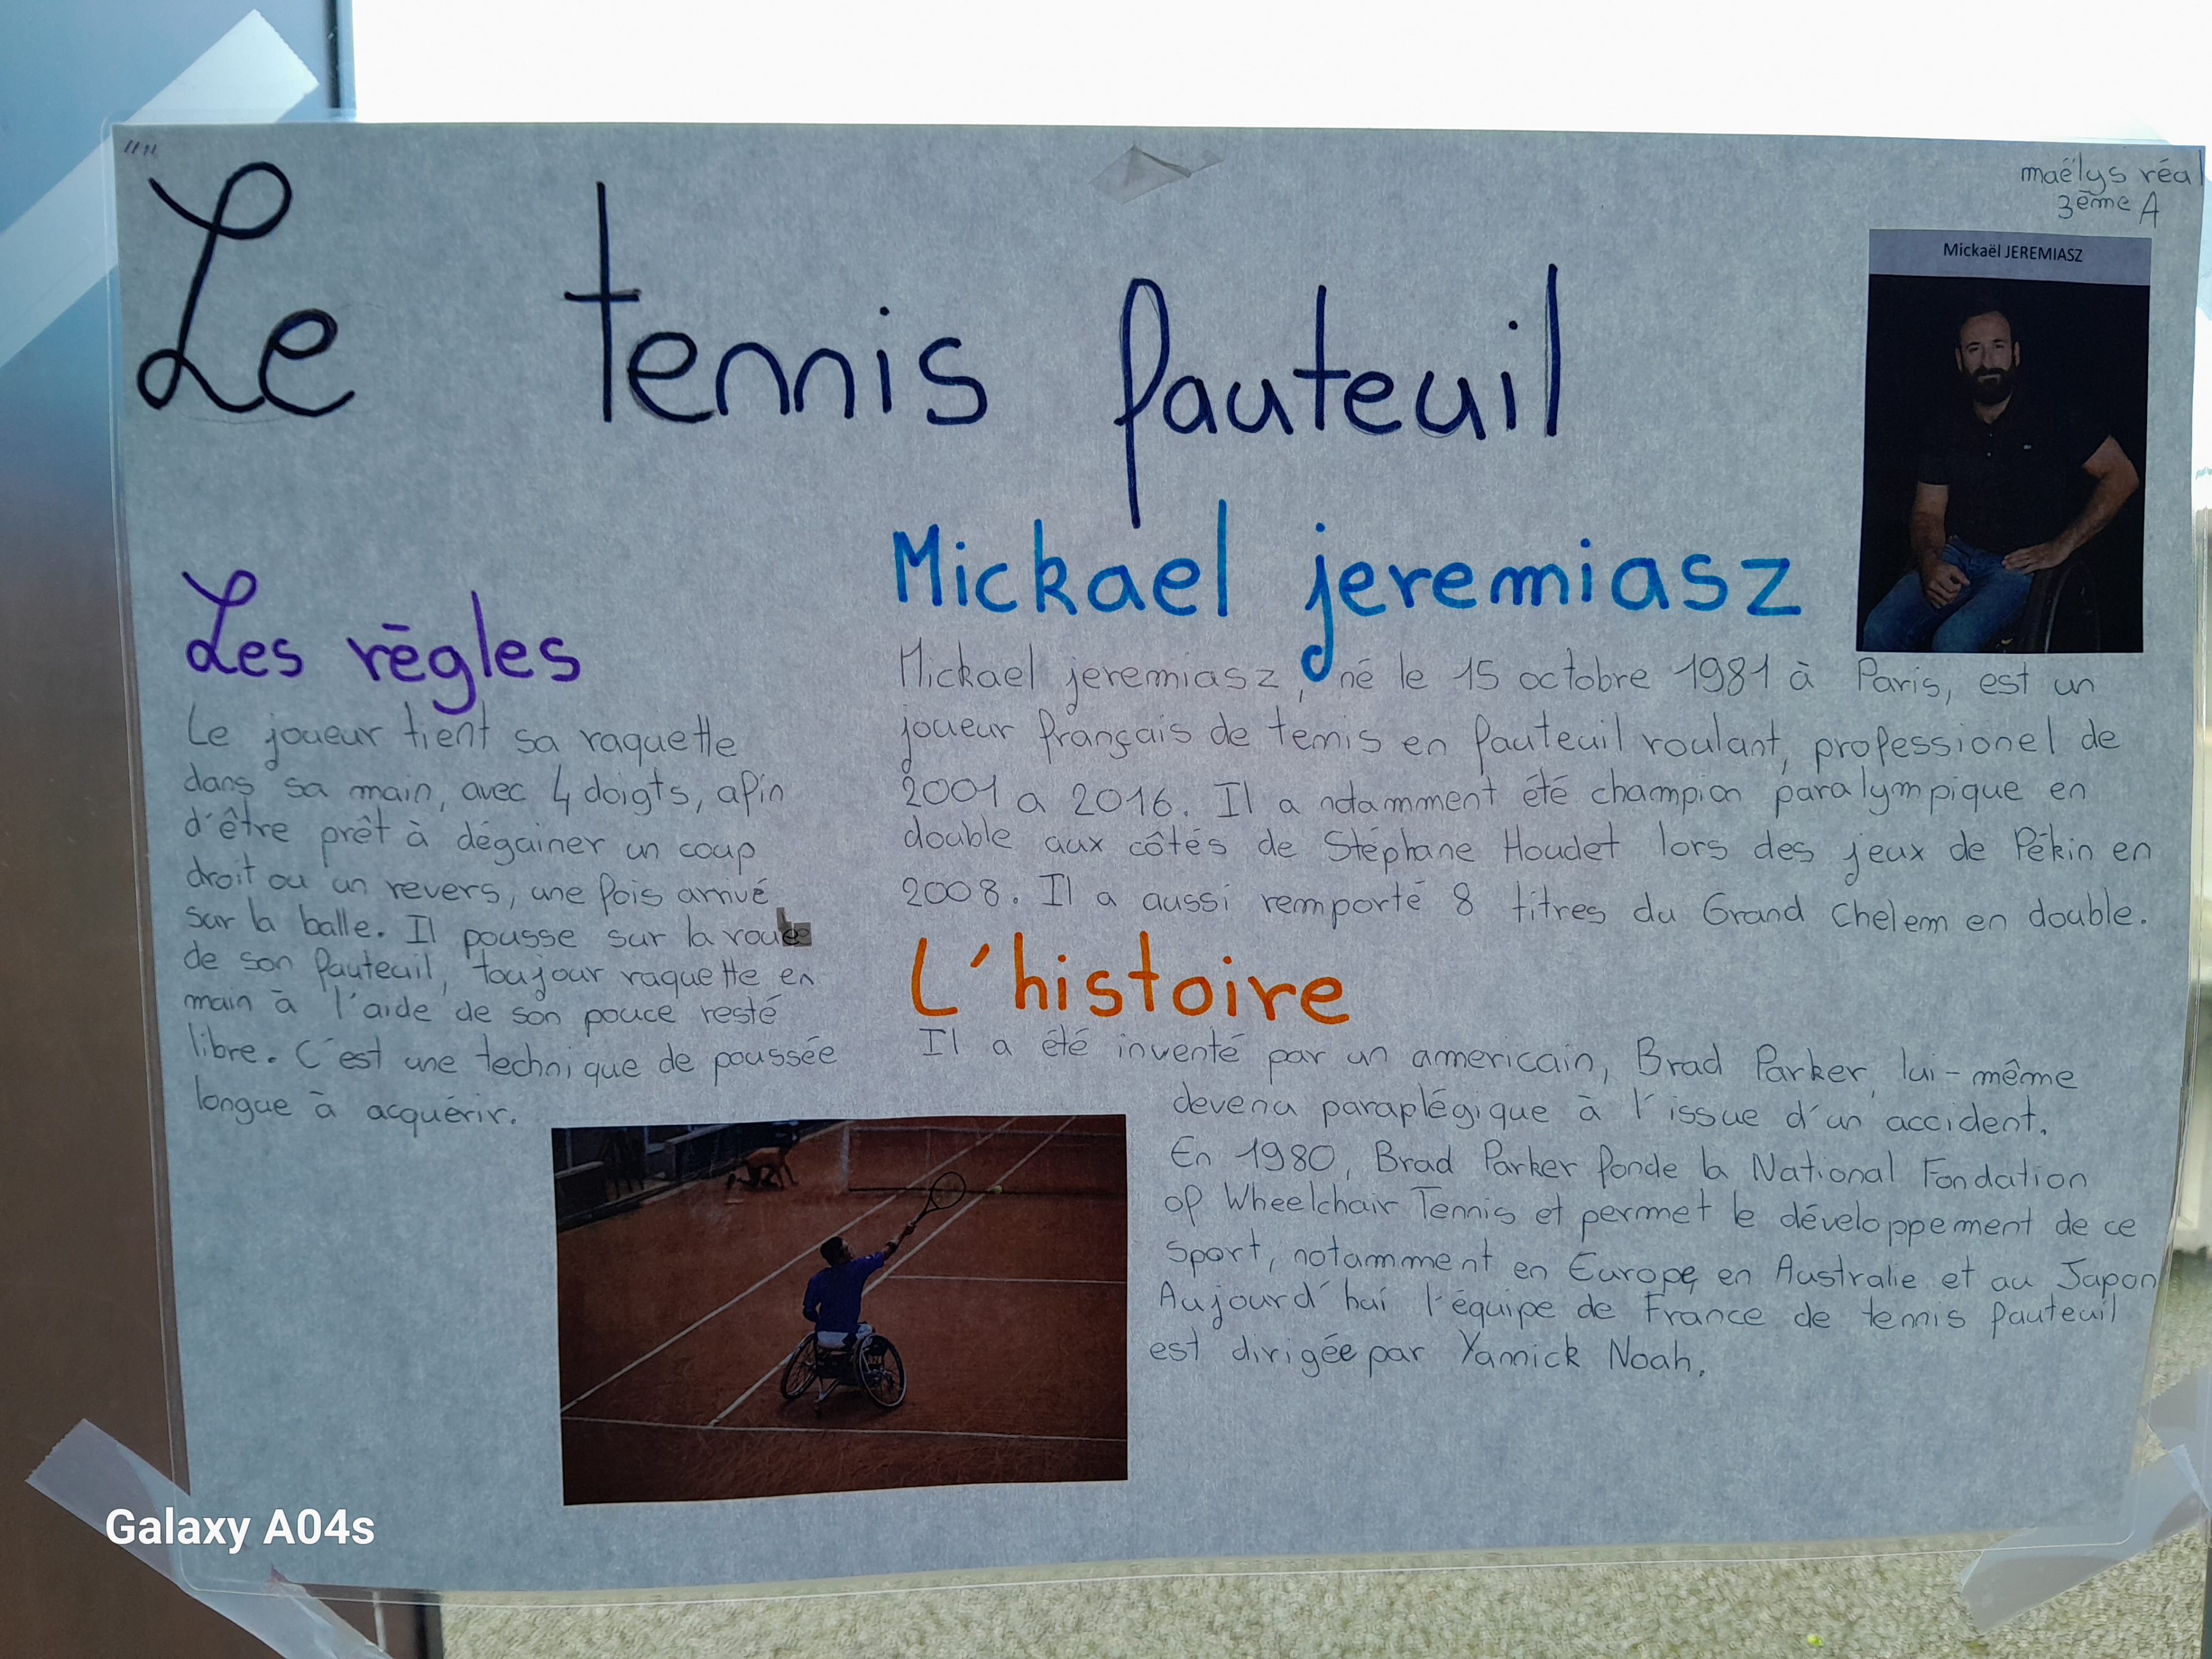 maëlys réal
3ème A
Le tennis fauteuil
Mickaël JEREMIASZ
Les règles
Le joueur tient sa raquette
dans sa main, avec 4 doigts, afin
d'être prêt à dégainer un coup
droit ou un revers, une fois arrivé
sur la balle. Il pousse sur la roue
de son fauteuil, toujour raquette en
main à l'aide de son pouce resté
libre. C'est une technique de poussée
longue à acquérir.
Mickael jeremiasz
Mickael jeremiasz, né le 15 octobre 1981 à Paris, est un
joueur français de tennis en fauteuil roulant, professionel de
2001 a 2016. Il a notamment été champion paralympique en
double aux côtés de Stéphane Houdet lors des jeux de Pékin en
2008. Il a aussi remporté 8 titres du Grand Chelem en double.
L'histoire
Il a été inventé par un americain, Brad Parker, lui-même
devenu paraplégique à l'issue d'un accident.
En 1980, Brad Parker fonde la National Fondation
of Wheelchair Tennis et permet le développement de ce
sport, notamment en Europe, en Australie et au Japon
Aujourd'hui l'équipe de France de tennis fauteuil
est dirigée par Yannick Noah.
Galaxy A04s